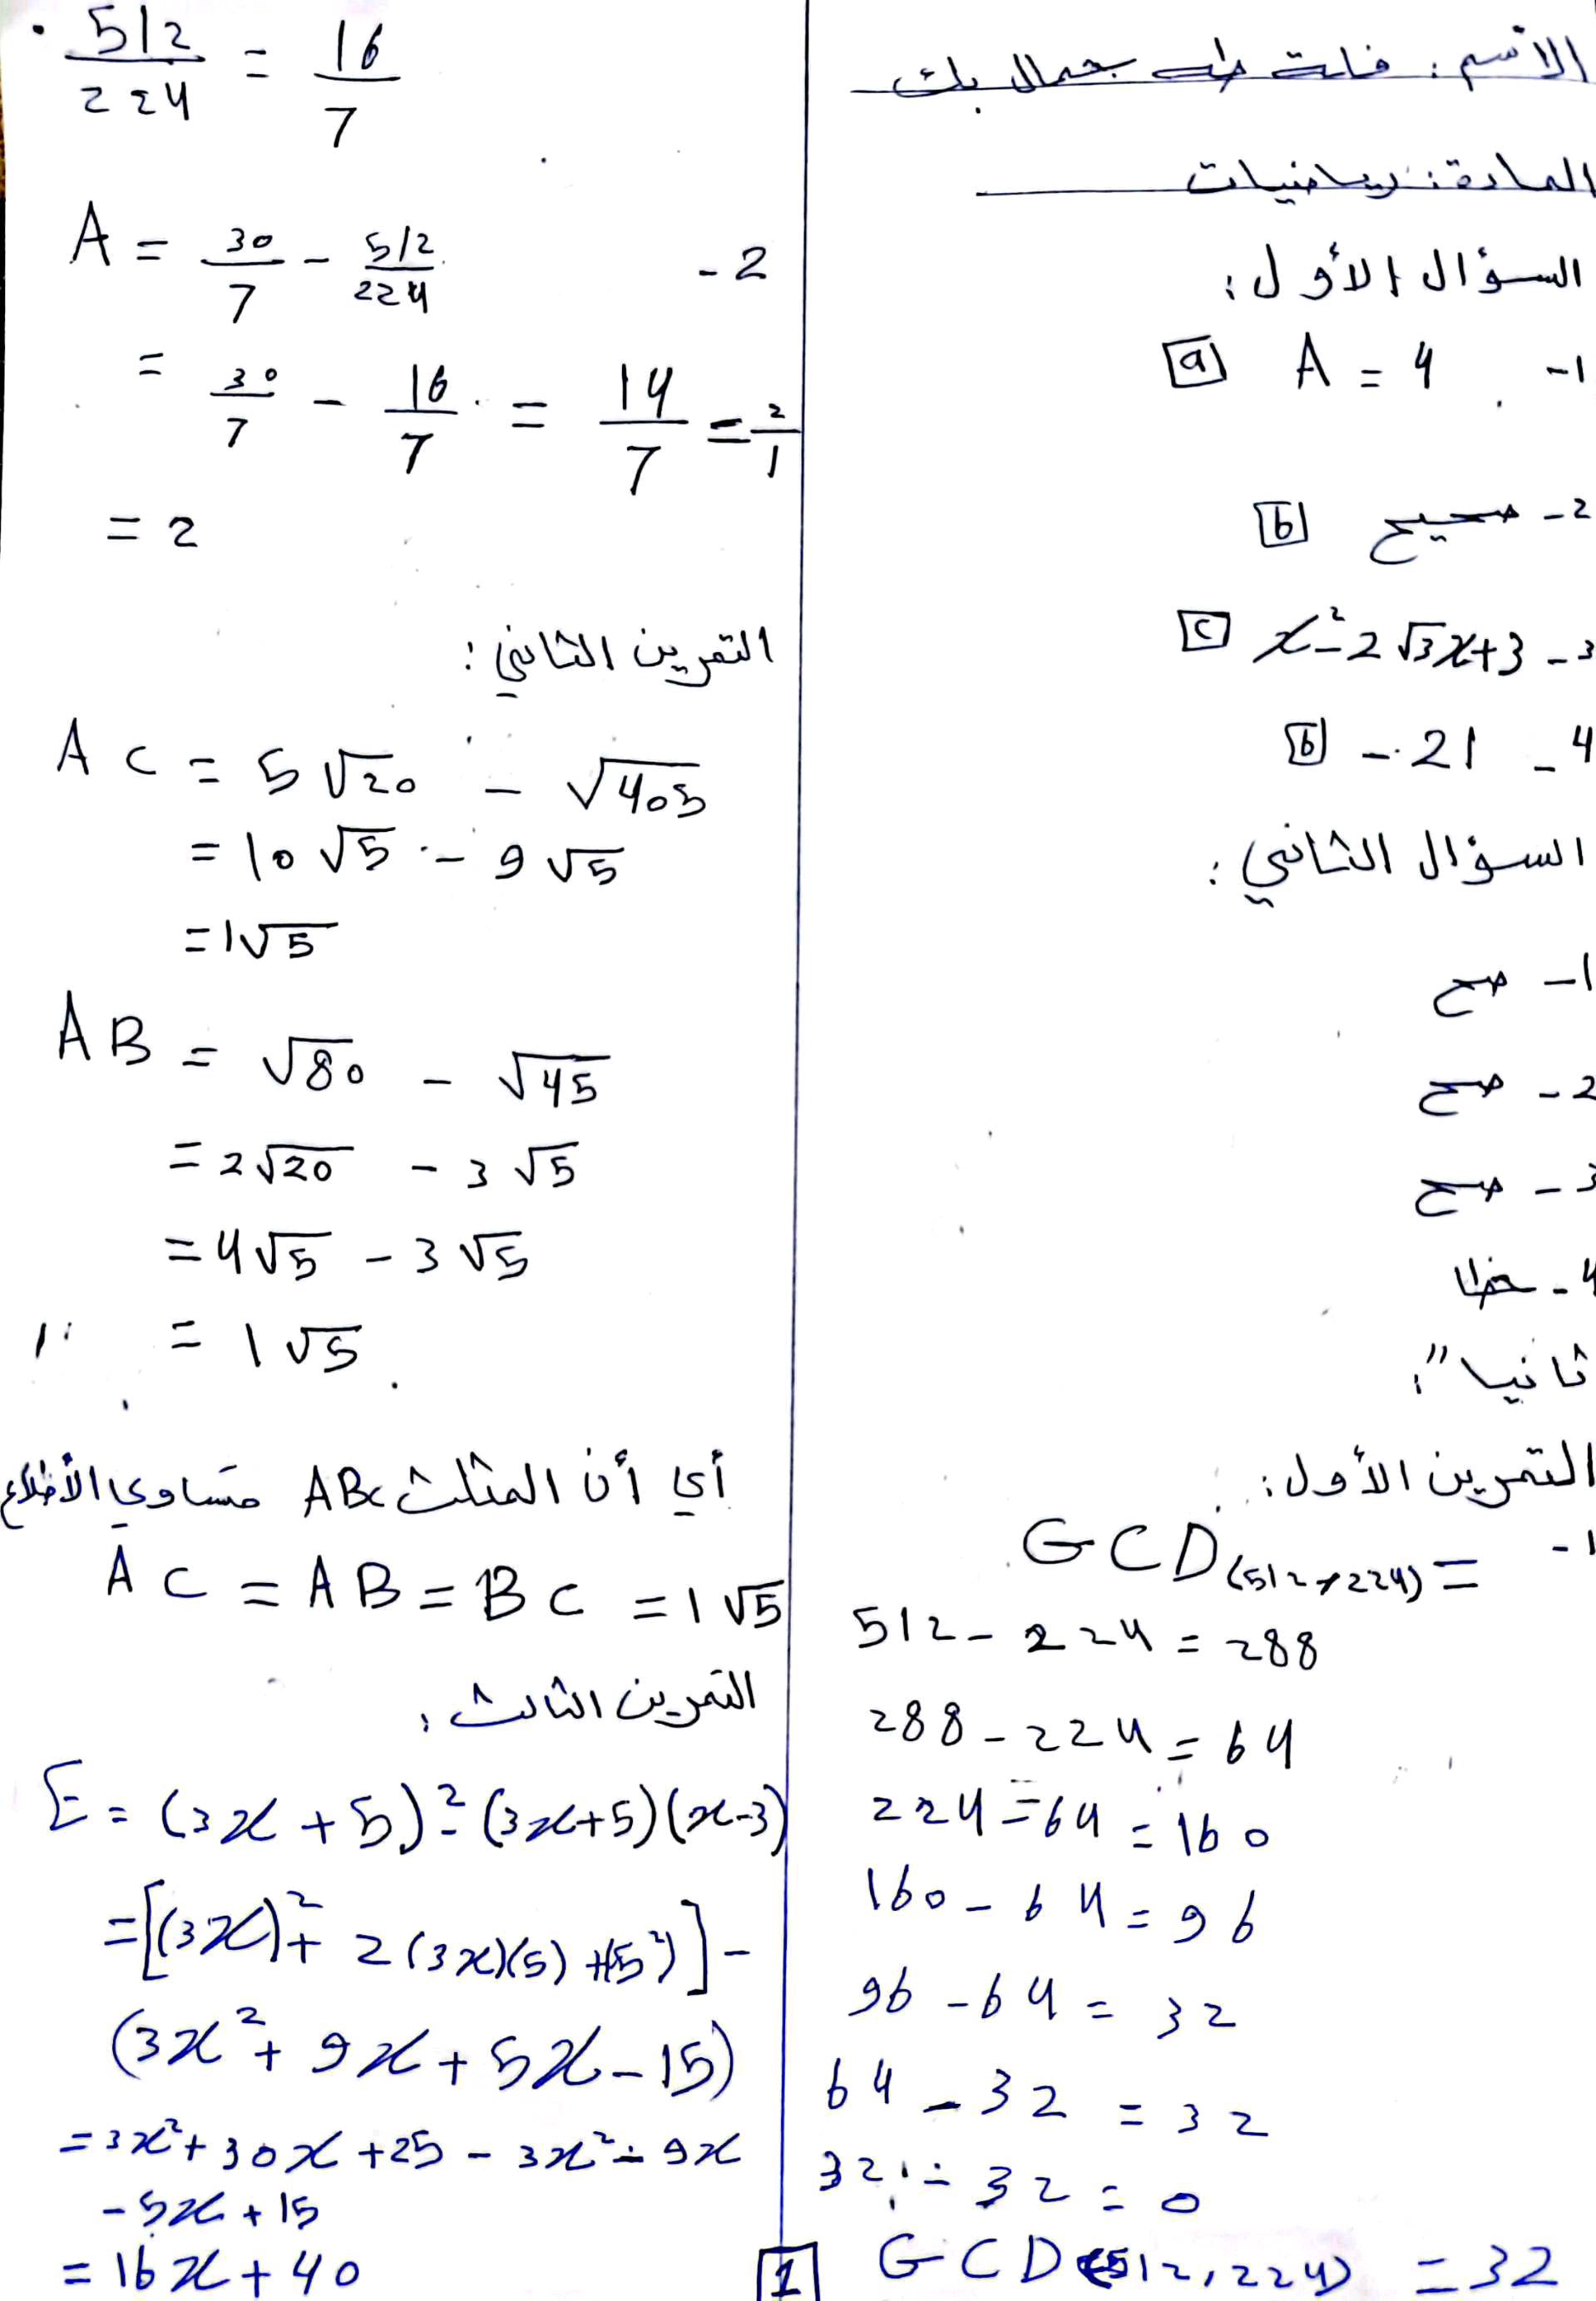 الاسم: طه جمال بك
المادة: رياضيات
السؤال الأول:
1- A = 4 [a]
2- صحيح [b]
3- x² - 2√3x + 3 [c]
4- -21 [b]
السؤال الثاني:
1- صح
2- صح
3- صح
4- خطا
ثانيا":
التمرين الأول:
1- GCD(512,224) =
512 - 224 = 288
288 - 224 = 64
224 - 64 = 160
160 - 64 = 96
96 - 64 = 32
64 - 32 = 32
32 - 32 = 0
GCD(512,224) = 32
[1]
512/224 = 16/7
2- A = 30/7 - 512/224
= 30/7 - 16/7 = 14/7 = 2/1
= 2
التمرين الثاني:
AC = 5√20 - √405
= 10√5 - 9√5
= 1√5
AB = √80 - √45
= 2√20 - 3√5
= 4√5 - 3√5
= 1√5
أي أن المثلث ABC متساوي الأضلاع
AC = AB = BC = 1√5
التمرين الثالث:
E = (3x + 5)² - (3x+5)(x-3)
= [(3x)² + 2(3x)(5) + (5²)] -
(3x² + 9x + 5x - 15)
= 3x² + 30x + 25 - 3x² - 9x
- 5x + 15
= 16x + 40